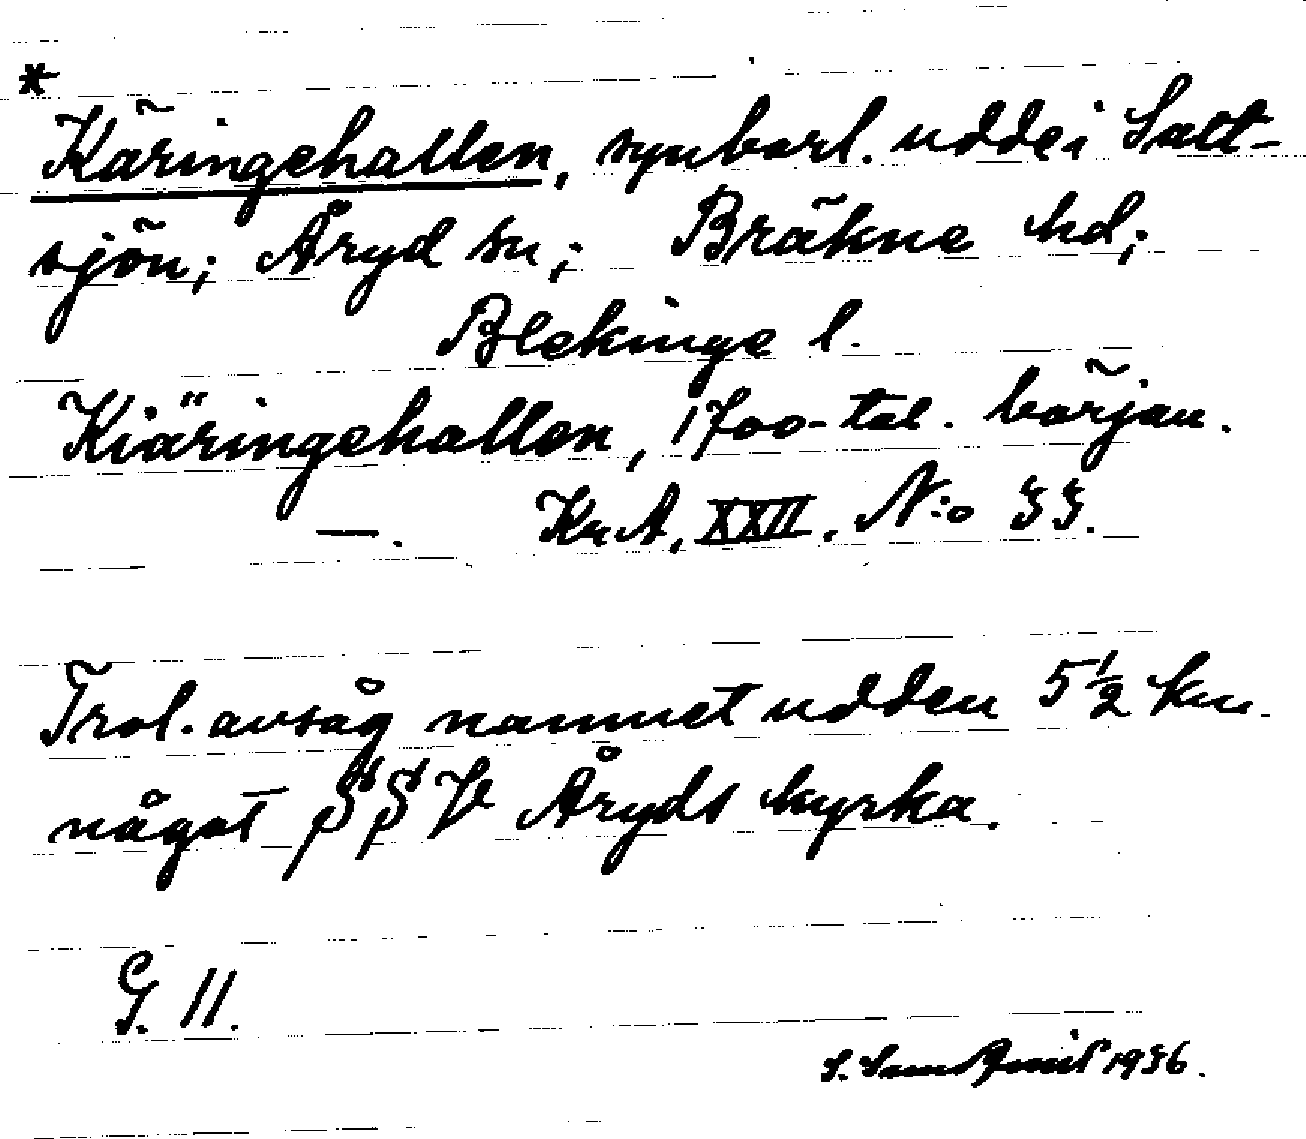 *
Käringehallen, synbarl. udde i Salt-
sjön; Åryd sn; Bräkne hd;
Blekinge l.
Kiäringehallen, 1700-tal. början.
—. KrA, XXII, N:o 33.
Trol. avsåg namnet udden 5 1/2 km.
något SSV Åryds kyrka.
G. 11.
1936.